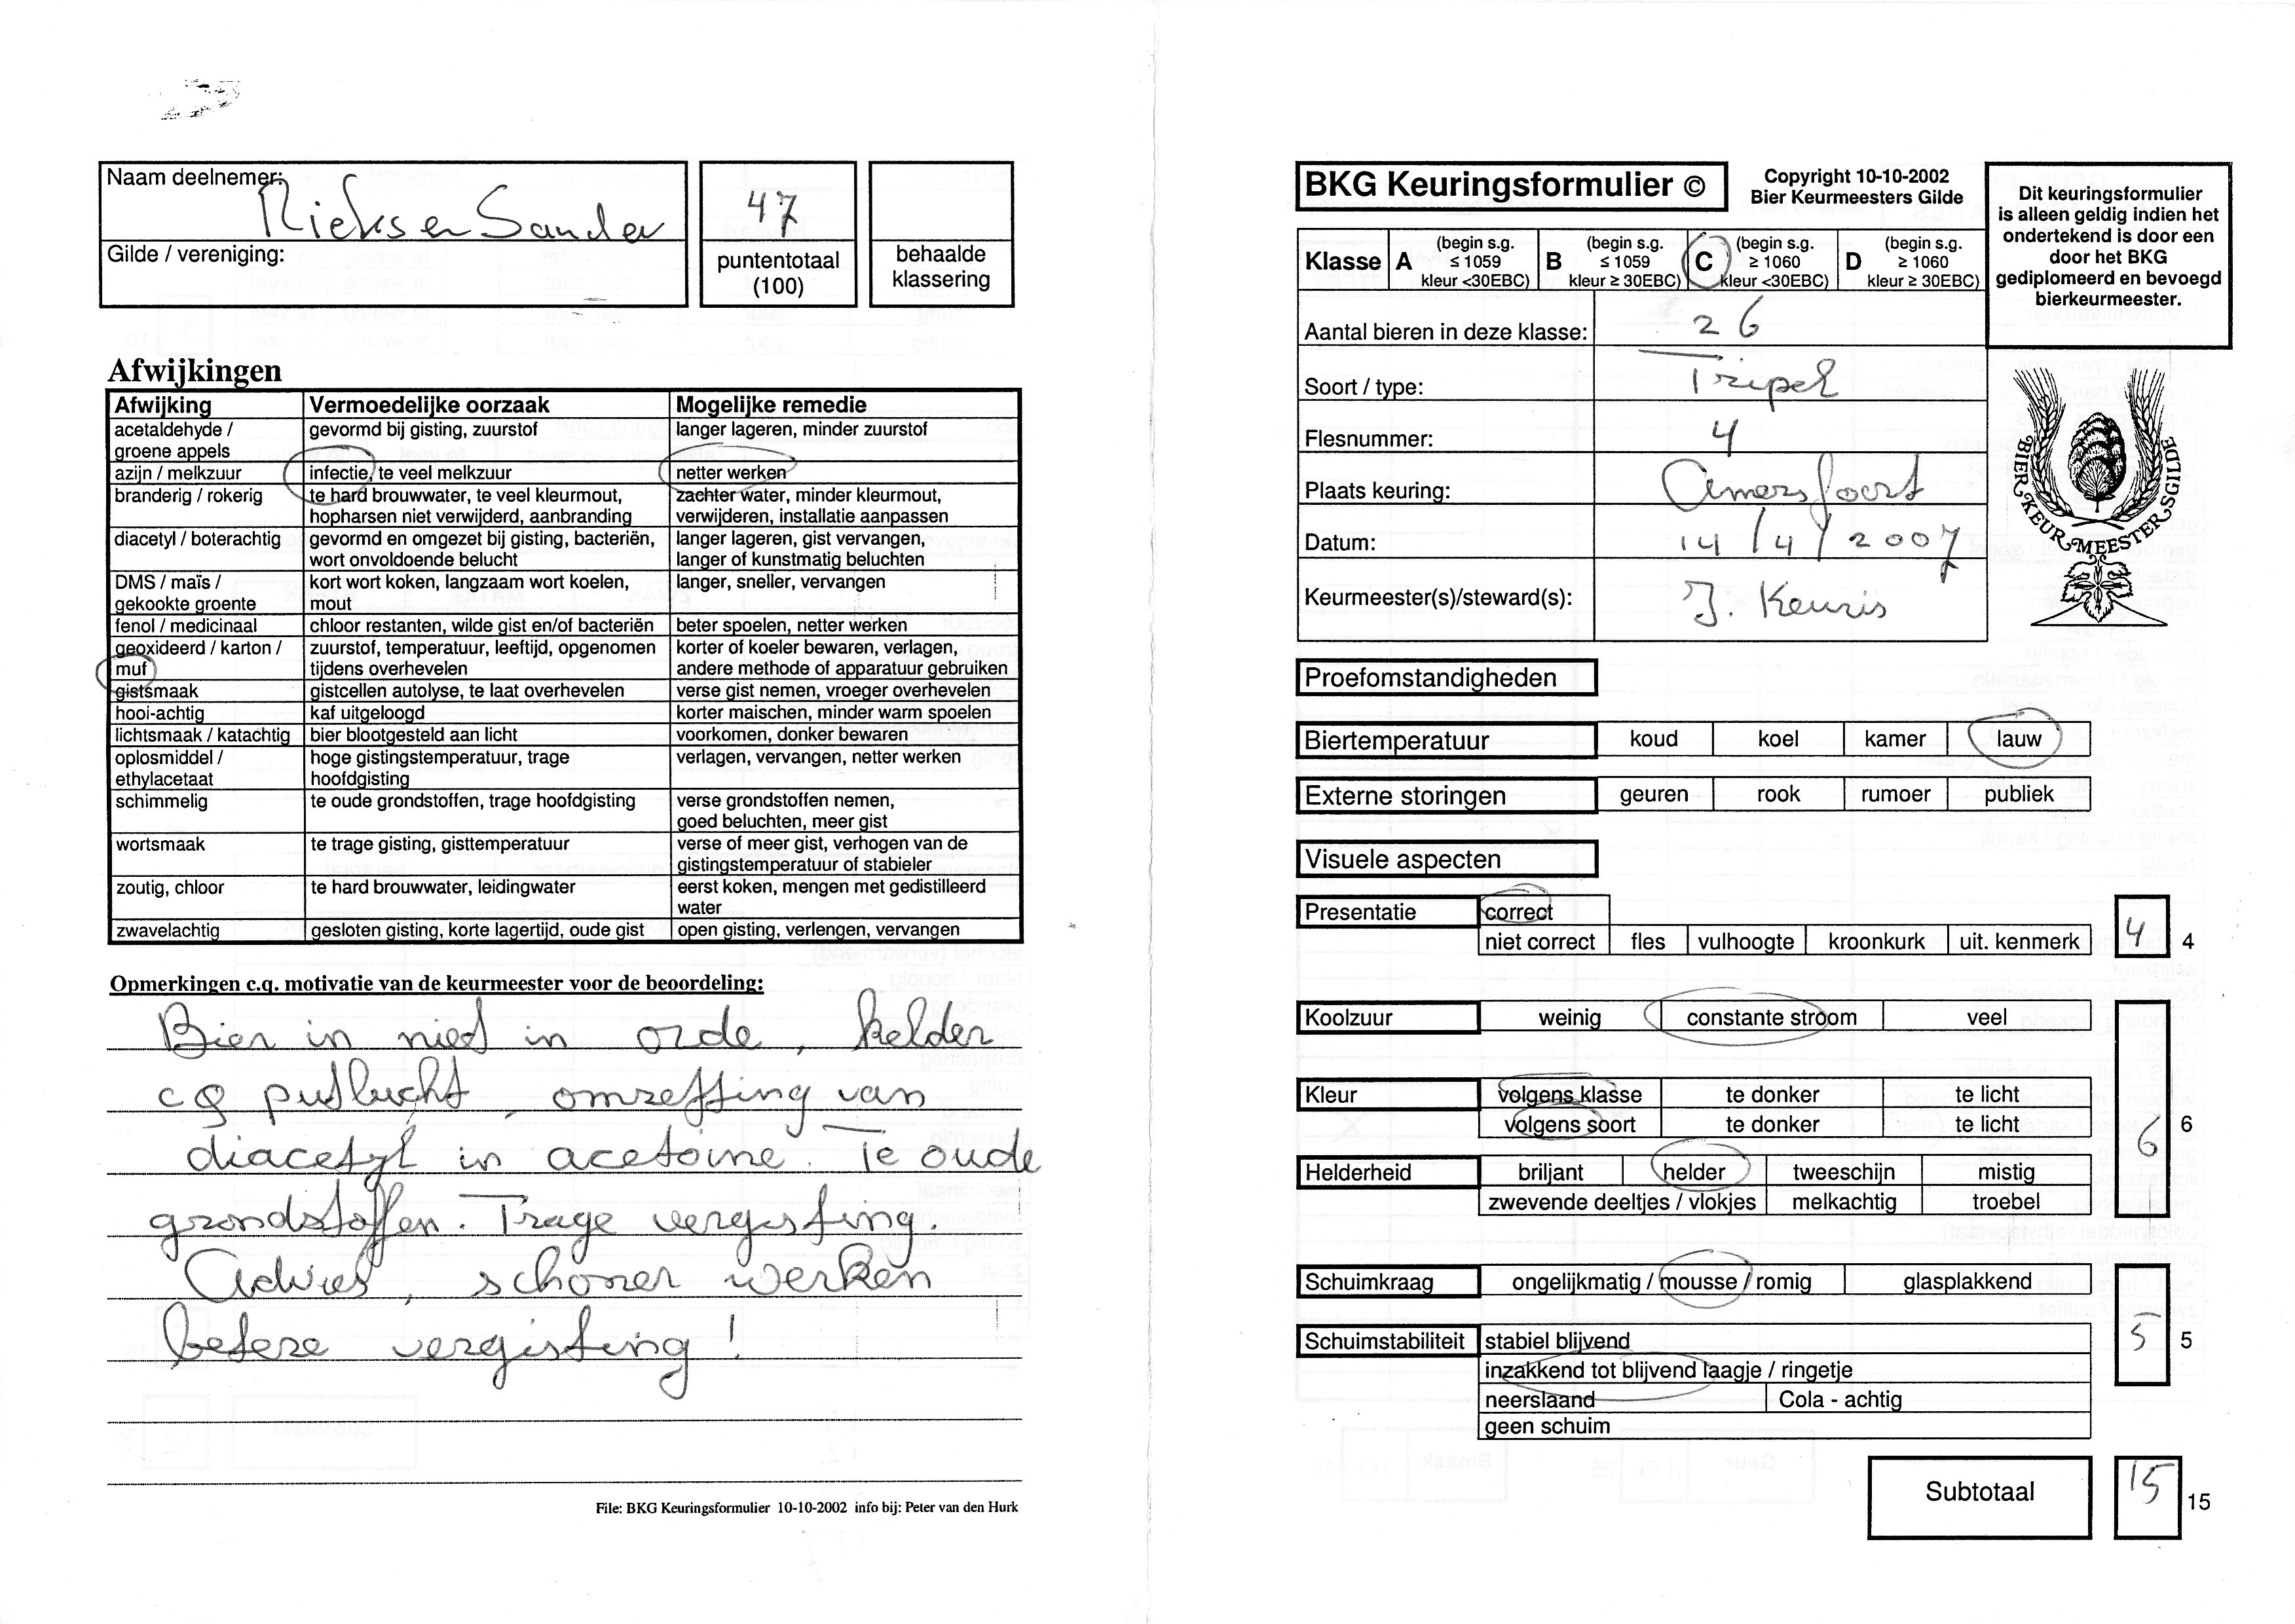 Naam deelnemer:
Rieks en Sander
Gilde / vereniging:
47
puntentotaal
(100)
behaalde
klassering
Afwijkingen
Afwijking Vermoedelijke oorzaak Mogelijke remedie
acetaldehyde / gevormd bij gisting, zuurstof langer lageren, minder zuurstof
groene appels
azijn / melkzuur infectie, te veel melkzuur netter werken
branderig / rokerig te hard brouwwater, te veel kleurmout, zachter water, minder kleurmout,
hopharsen niet verwijderd, aanbranding verwijderen, installatie aanpassen
diacetyl / boterachtig gevormd en omgezet bij gisting, bacteriën, langer lageren, gist vervangen,
wort onvoldoende belucht langer of kunstmatig beluchten
DMS / maïs / kort wort koken, langzaam wort koelen, langer, sneller, vervangen
gekookte groente mout
fenol / medicinaal chloor restanten, wilde gist en/of bacteriën beter spoelen, netter werken
geoxideerd / karton / zuurstof, temperatuur, leeftijd, opgenomen korter of koeler bewaren, verlagen,
muf tijdens overhevelen andere methode of apparatuur gebruiken
gistsmaak gistcellen autolyse, te laat overhevelen verse gist nemen, vroeger overhevelen
hooi-achtig kaf uitgeloogd korter maischen, minder warm spoelen
lichtsmaak / katachtig bier blootgesteld aan licht voorkomen, donker bewaren
oplosmiddel / hoge gistingstemperatuur, trage verlagen, vervangen, netter werken
ethylacetaat hoofdgisting
schimmelig te oude grondstoffen, trage hoofdgisting verse grondstoffen nemen,
goed beluchten, meer gist
wortsmaak te trage gisting, gisttemperatuur verse of meer gist, verhogen van de
gistingstemperatuur of stabieler
zoutig, chloor te hard brouwwater, leidingwater eerst koken, mengen met gedistilleerd
water
zwavelachtig gesloten gisting, korte lagertijd, oude gist open gisting, verlengen, vervangen
Opmerkingen c.q. motivatie van de keurmeester voor de beoordeling:
Bier in niet in orde, kelder
cq putlucht, omzetting van
diacetyl in acetoine. Te oude
grondstoffen. Trage vergisting.
Advies, schoner werken
betere vergisting!
File: BKG Keuringsformulier 10-10-2002 info bij: Peter van den Hurk
BKG Keuringsformulier ©
Copyright 10-10-2002
Bier Keurmeesters Gilde
Dit keuringsformulier
is alleen geldig indien het
ondertekend is door een
door het BKG
gediplomeerd en bevoegd
bierkeurmeester.
Klasse A (begin s.g. ≤ 1059 kleur <30EBC) B (begin s.g. ≤ 1059 kleur ≥ 30EBC) C (begin s.g. ≥ 1060 kleur <30EBC) D (begin s.g. ≥ 1060 kleur ≥ 30EBC)
Aantal bieren in deze klasse: 26
Soort / type: Tripel
Flesnummer: 4
Plaats keuring: Amersfoort
Datum: 14/4/2007
Keurmeester(s)/steward(s): J. Keuris
BIER KEUR MEESTERS GILDE
Proefomstandigheden
Biertemperatuur koud koel kamer lauw
Externe storingen geuren rook rumoer publiek
Visuele aspecten
Presentatie correct
niet correct fles vulhoogte kroonkurk uit. kenmerk 4 4
Koolzuur weinig constante stroom veel
Kleur volgens klasse te donker te licht
volgens soort te donker te licht 6 6
Helderheid briljant helder tweeschijn mistig
zwevende deeltjes / vlokjes melkachtig troebel
Schuimkraag ongelijkmatig / mousse / romig glasplakkend
Schuimstabiliteit stabiel blijvend 5 5
inzakkend tot blijvend laagje / ringetje
neerslaand Cola - achtig
geen schuim
Subtotaal 15 15